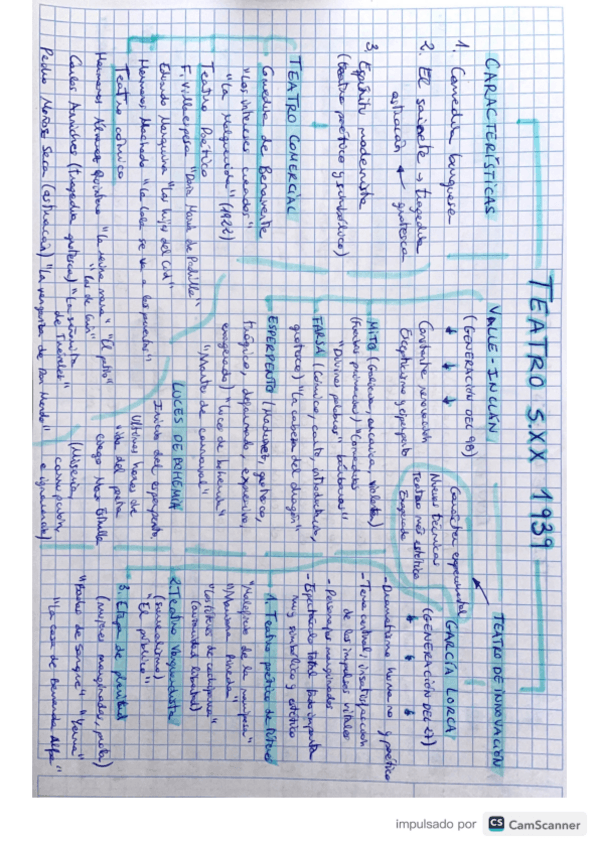 TEATRO S.XX 1939
CARACTERÍSTICAS
1. Comedia burguesa
2. El sainete → tragedia
grotesca
astracán
3. Espíritu modernista
(teatro poético y simbólico)
TEATRO COMERCIAL
Comedia de Benavente
"Los intereses creados"
"La Malquerida" (1922)
Teatro Poético
F. Villaespesa "Doña María de Padilla"
Eduardo Marquina "Las hijas del Cid"
Hermanos Machado "La Lola se va a los puertos"
Teatro cómico
Hermanos Álvarez Quintero "La reina mora" "El patio"
Carlos Arniches (tragedia grotesca) "La señorita
de Trévelez"
Pedro Muñoz Seca (astracán) "La venganza de Don Mendo"
VALLE-INCLÁN
(GENERACIÓN DEL 98)
Constante renovación
Escepticismo y esperpento
MITO (Galicia, arcaica, violenta)
"Divinas palabras" "Comedias
bárbaras"
FARSA (Cómico,
grotesco) "La cabeza del dragón"
ESPERPENTO (grotesco,
trágico, deformado, expresivo,
exagerado) "Luces de bohemia"
"Martes de carnaval"
LUCES DE BOHEMIA
Inicios del esperpento,
últimas horas de
vida del poeta
ciego Max Estrella
(Miseria,
corrupción,
e ignorancia)
TEATRO DE INNOVACIÓN
Carácter experimental
Nuevas técnicas
Teatro más estético
GARCÍA LORCA
(GENERACIÓN DEL 27)
- Dramatismo humano y poético
- Tema central, insatisfacción
de los impulsos vitales
- Personajes marginados
- Espectáculo total todo importa
muy simbólico y estético
1. Teatro poético de títeres
"Maleficio de la mariposa"
"Mariana Pineda"
"Los títeres de cachiporra"
2. Teatro Vanguardista
(surrealismo)
"El público"
3. Etapa de plenitud
(mujeres marginadas,
"Bodas de sangre" "Yerma"
"La casa de Bernarda Alba"
impulsado por CS CamScanner